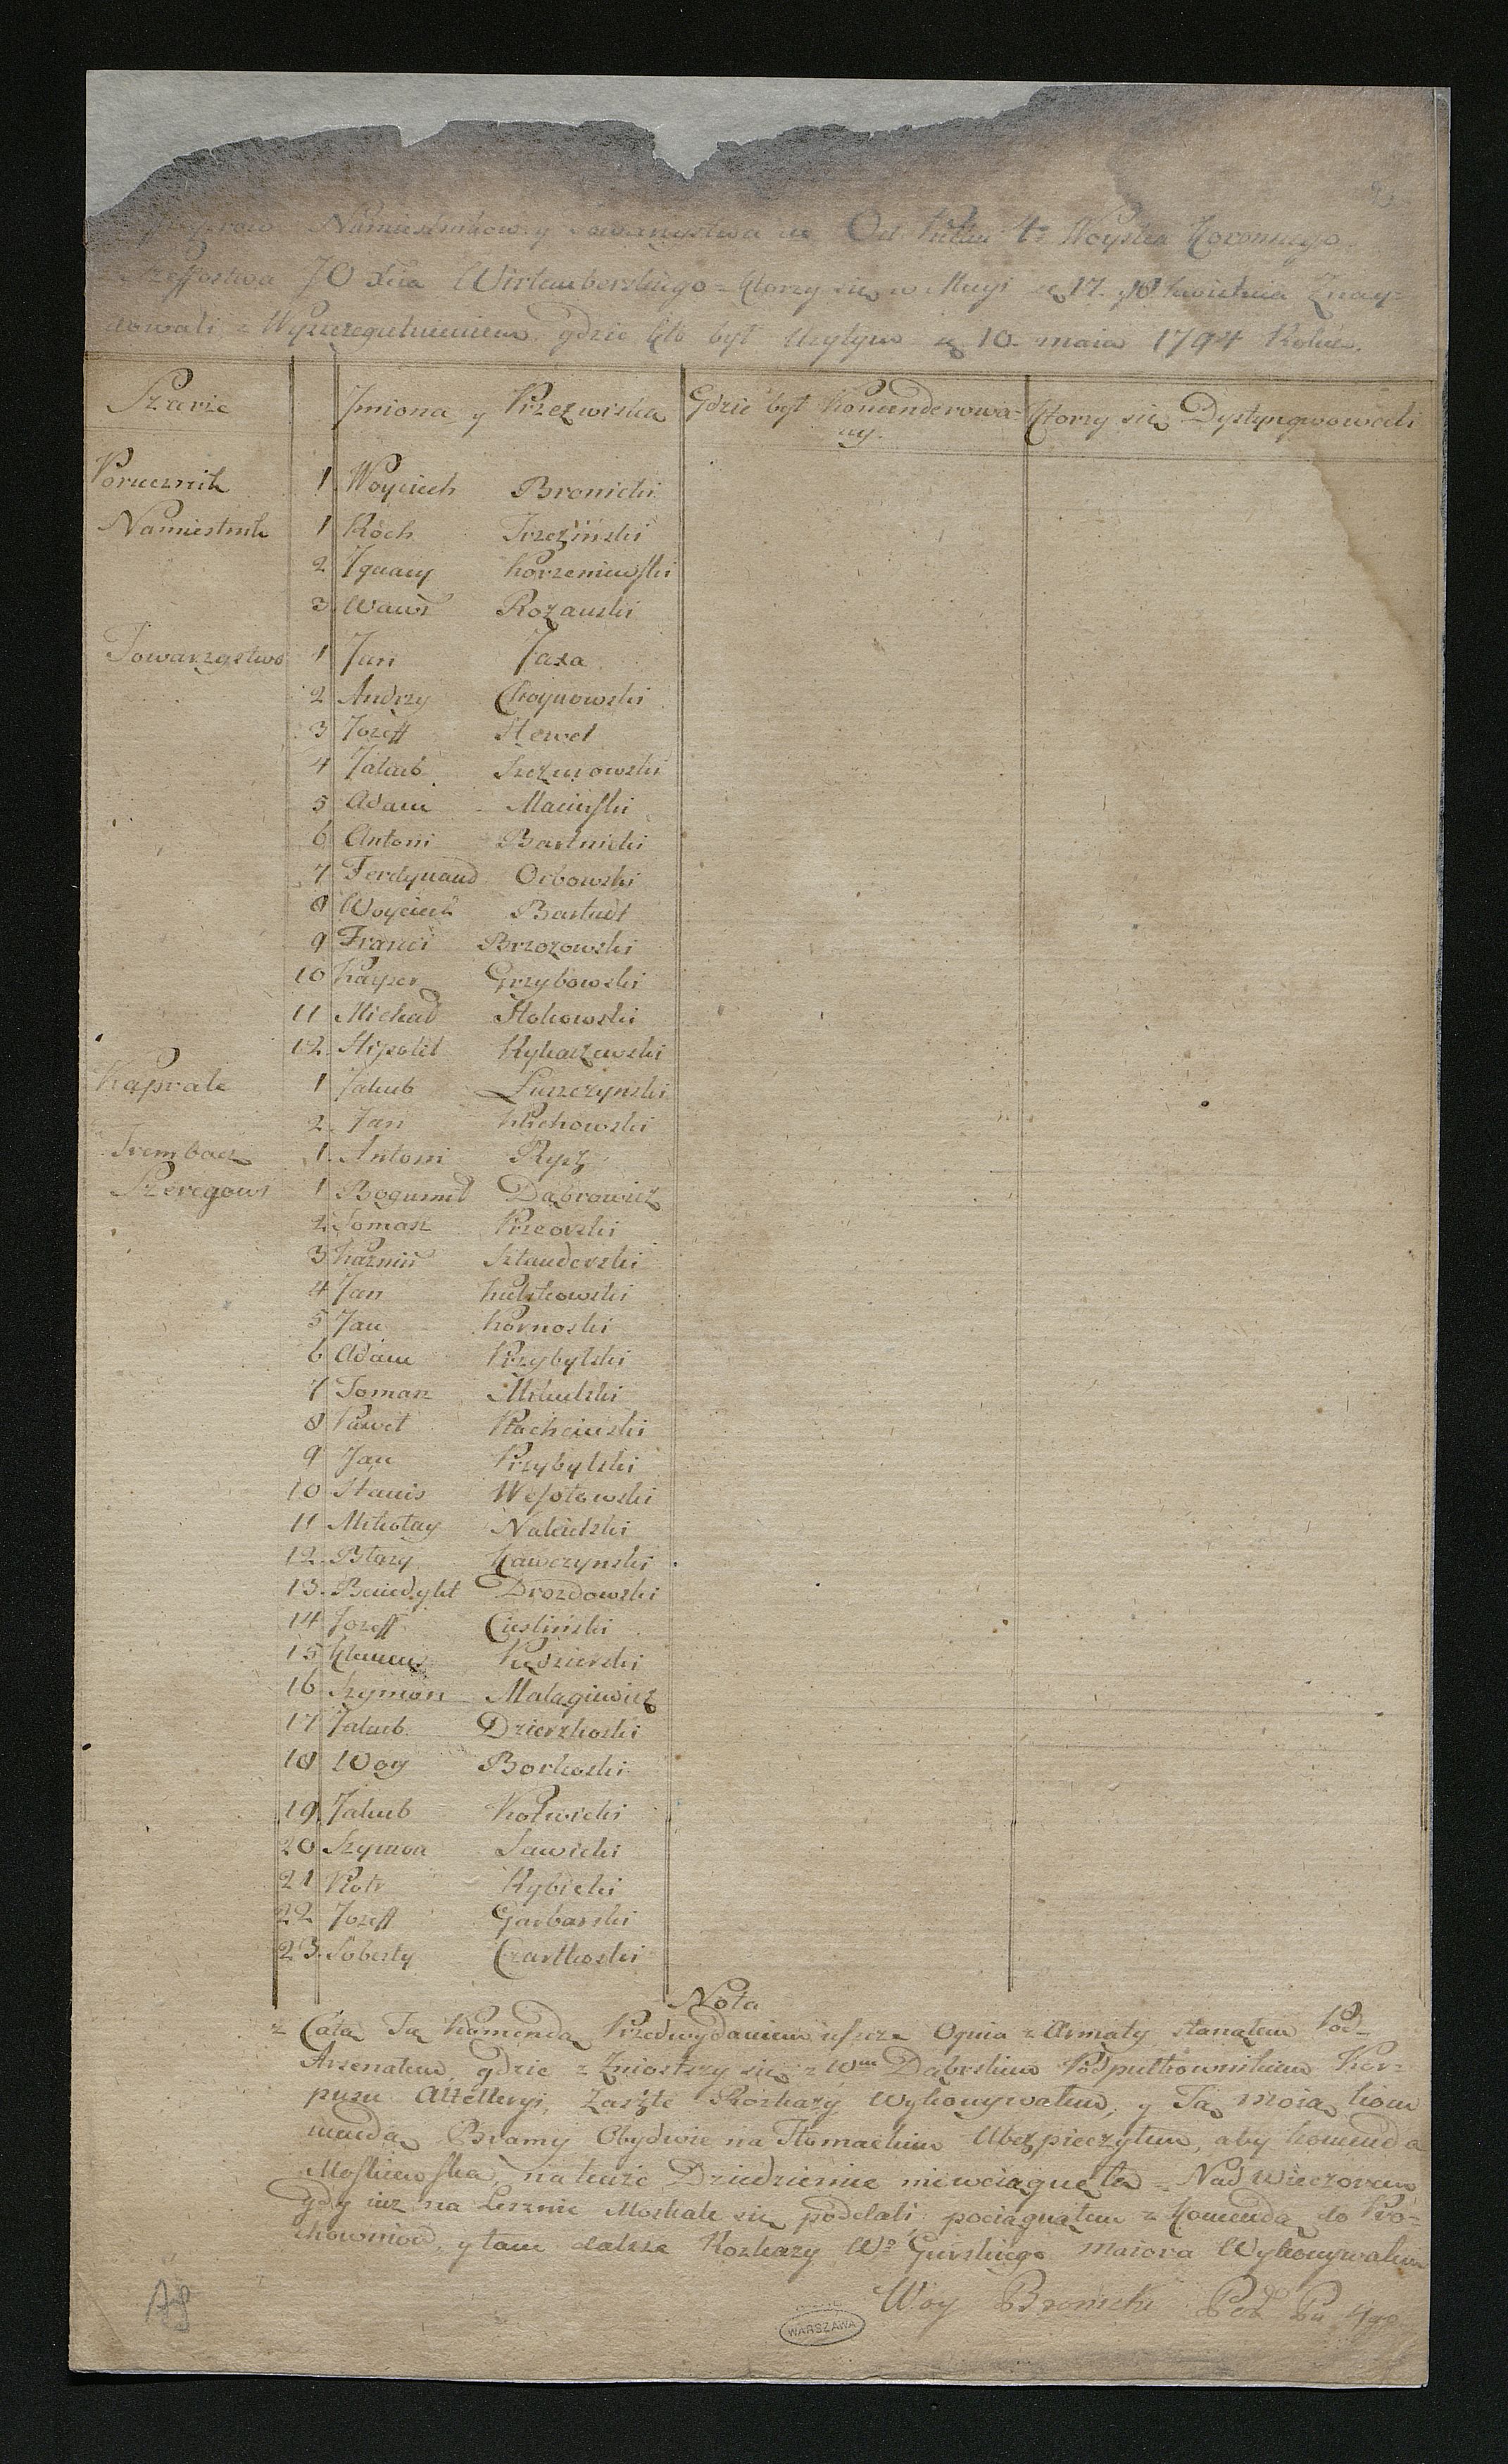 Namiestnikow y Towarzystwa z Od Pułku 4º Woyska Koronnego
Szeffostwa JO Xcia Wirtemberskiego = ktorzy się w Akcyi d 17. y 18 kwietnia Znay=
dowali z Wyszczegulnieniem gdzie kto był Użytym d 10. maia 1794 Roku.
Szarże Jmiona y Przezwiska Gdzie był Komenderowa= Ktorzy się Dystyngwowali
ny.
Porucznik 1 Woyciech Bronicki
Namiestnik 1 Roch Trzeźiński
2 Jgnacy Korzeniewski
3 Waw. Rozanski
Towarzystwo 1 Jan Jaxa
2 Andrzy Choynowski
3 Jozeff
4 Jakub
5 Adam Macieski
6 Antoni Bartnicki
7 Ferdynand Orłowski
8 Woyciech
9 Franci Brzozowski
10 Kasper Grzybowski
11 Michał Stokowski
12. Hipolit Rykaczewski
Kaprale 1 Jakub Luszczynski
2. Jan Klichowski
Trembacz 1. Antoni Rysz
Szeregowi 1 Bogumił Dąbrowicz
2 Tomasz
3 Kazmir Sztanderski
4 Jan Kulikowski
5 Jan Kornoski
6 Adam Przybylski
7 Tomasz Mikulski
8 Paweł Płachciński
9 Jan Przybylski
10 Stanis Wesołowski
11 Mikołay Nakielski
12. Błazy Kawczynski
13. Benedykt Drozdowski
14 Jozeff Ciesliński
15 Klemens Kędzierski
16 Szymon Małagiewicz
17 Jakub Dzierzkoski
18 Woy Borkoski
19 Jakub Kotwicki
20 Szymon Sawicki
21 Piotr Rybicki
22 Jozeff Garbarski
23. Soberty Czartkoski
Nota
z Całą Tą Komendą Przedwydaniem ieszcze Ognia z Armaty stanąłem Pod
Arsenałem, gdzie z Zniosłszy się z Wm Dąbrskim Podpułkownikiem Kor=
pusu Artelleryi, Zaszłe Rozkazy Wykonywałem, y Tą moią kom
mendą Bramy Obydwie na Tłomackim Ubezpieczyłem, aby komenda
Moskiewska, na tuże Dziedzienie niewciągnęła = Nad wieczorem
gdy iuż na Lesznie Moskale się poddali pociągnąłem z Komendą do Pro=
chowniow, y tam dalsze Rozkazy Wº Gurskiego Maiora Wykonywałem
Woy Bronicki Por Pu 4go
WARSZAWA